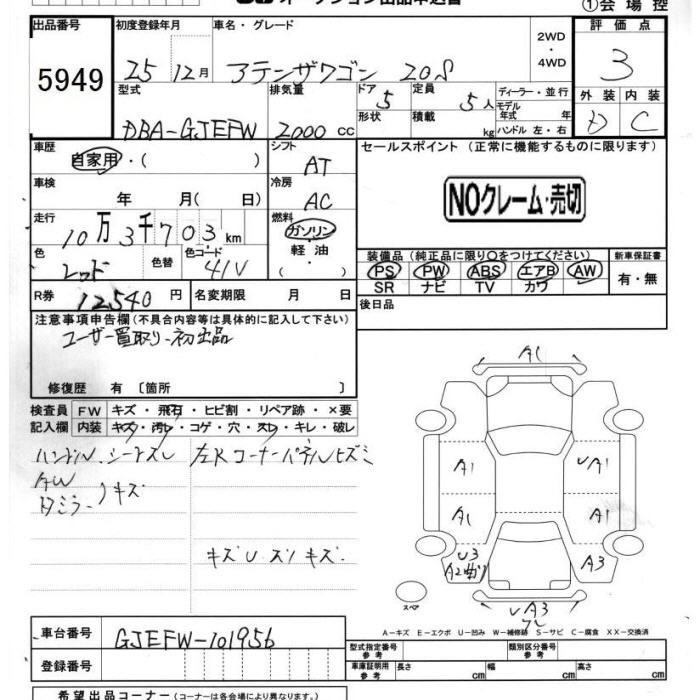 オークション出品申込書
①会場控
出品番号 初度登録年月 車名・グレード 2WD・4WD 評価点
5949 25 12月 アテンザワゴン 20S 3
型式 排気量 ドア 5 定員 5人 ディーラー・並行 外装 内装
モデル年式 年
DBA-GJEFW 2000 CC 形状 積載 kg ハンドル 左・右 D C
車歴 シフト セールスポイント (正常に機能するものに限ります)
自家用・( ) AT
車検 冷房 NOクレーム・売切
年 月( 日) AC
走行 燃料
10万3千703km ガソリン・軽油・
色 色替 色コード 装備品 (純正品に限り○をつけてください) 新車保証書
レッド 41V PS PW ABS エアB AW 有・無
SR ナビ TV カワ
R券 12,540円 名変期限 月 日 後日品
注意事項申告欄 (不具合内容等は具体的に記入して下さい)
ユーザー買取り、初出品
修復歴 有 [箇所 ]
検査員 FW キズ・飛石・ヒビ割・リペア跡・×要
記入欄 内装 キズ・汚レ・コゲ・穴・スレ・キレ・破レ
ハンドル、シートスレ 左Rコーナーパネルヒズミ
AW
キズ
キズU
キズ
A1
A1 A1
A1 A1
U3 A3
A2
A3
スペア
A−キズ E−エクボ U−凹み W−補修跡 S−サビ C−腐食 XX−交換済
車台番号 GJEFW-101956
型式指定番号 参考 類別区分番号 参考
登録番号
車庫証明用 参考 長さ cm 幅 cm 高さ cm
希望出品コーナー (コーナーは各会場により異なります。)